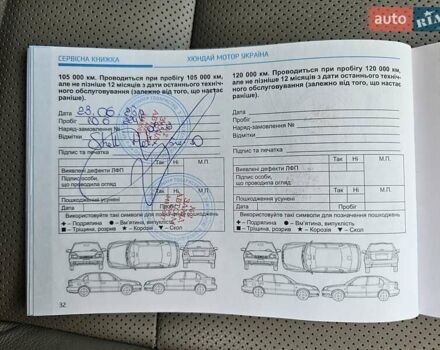 auto RIA
СЕРВІСНА КНИЖКА
ХЮНДАЙ МОТОР УКРАЇНА
105 000 км. Проводиться при пробігу 105 000 км,
але не пізніше 12 місяців з дати останнього техніч-
ного обслуговування (залежно від того, що настає
раніше).
Дата 23.06
Пробіг
Наряд-замовлення №
Відмітки Shell
Підпис та печатка
Так Ні М.П.
Виявлені дефекти ЛФП
Підпис особи,
що проводила огляд
Пошкодження усунені
Дата Пробіг
Використовуйте такі символи для позначення пошкоджень
+ - Подряпина ● - Вм'ятина, випуклість
■ - Тріщина, розрив ★ - Корозія ▼ - Скол
32
120 000 км. Проводиться при пробігу 120 000 км,
але не пізніше 12 місяців з дати останнього техніч-
ного обслуговування (залежно від того, що настає
раніше).
Дата
Пробіг
Наряд-замовлення №
Відмітки
Підпис та печатка
Так Ні М.П.
Виявлені дефекти ЛФП
Підпис особи,
що проводила огляд
Пошкодження усунені
Дата Пробіг
Використовуйте такі символи для позначення пошкоджень
+ - Подряпина ● - Вм'ятина, випуклість
■ - Тріщина, розрив ★ - Корозія ▼ - Скол